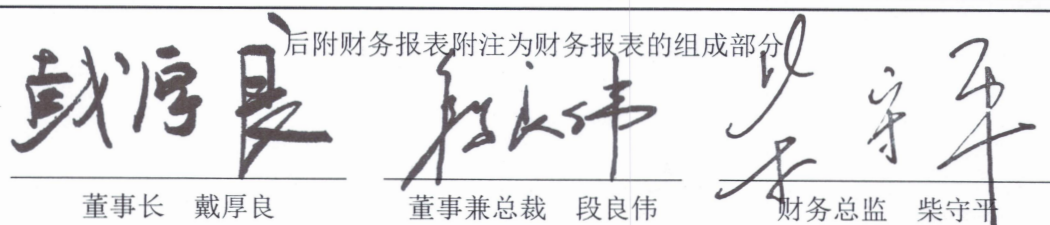 后附财务报表附注为财务报表的组成部分
戴厚良 段良伟 柴守平
董事长 戴厚良 董事兼总裁 段良伟 财务总监 柴守平